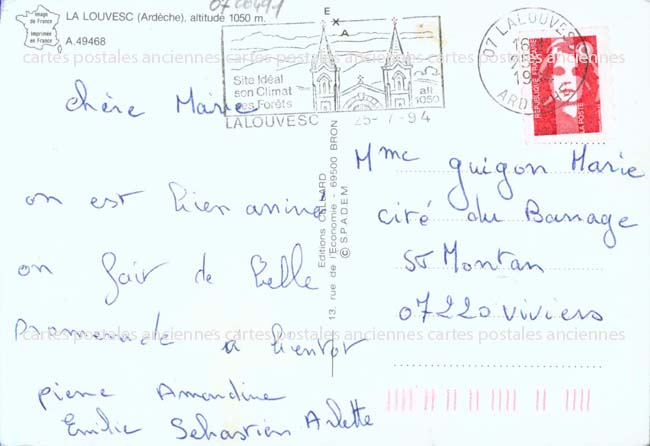 Image
de France
Imprimée
en France
LA LOUVESC (Ardèche), altitude 1050 m.
A.49468
E
A
Site Idéal
son Climat
ses Forêts
alt
1050
LALOUVESC 25-7-94
07 LALOUVESC
ARDECHE
REPUBLIQUE FRANÇAISE
LA POSTE
cartes postales anciennes cartes postales anciennes cartes postales anciennes
Chère Marie
on est bien arrivé
on fait de belle
promenade a bientot
pierre Amandine
Emilie Sebastien Arlette
Editions CELLARD
13, rue de l'Economie - 69500 BRON
© SPADEM
Mme guigon Marie
cité du Barrage
St Montan
07220 Viviers
cartes postales anciennes cartes postales anciennes cartes postales anciennes